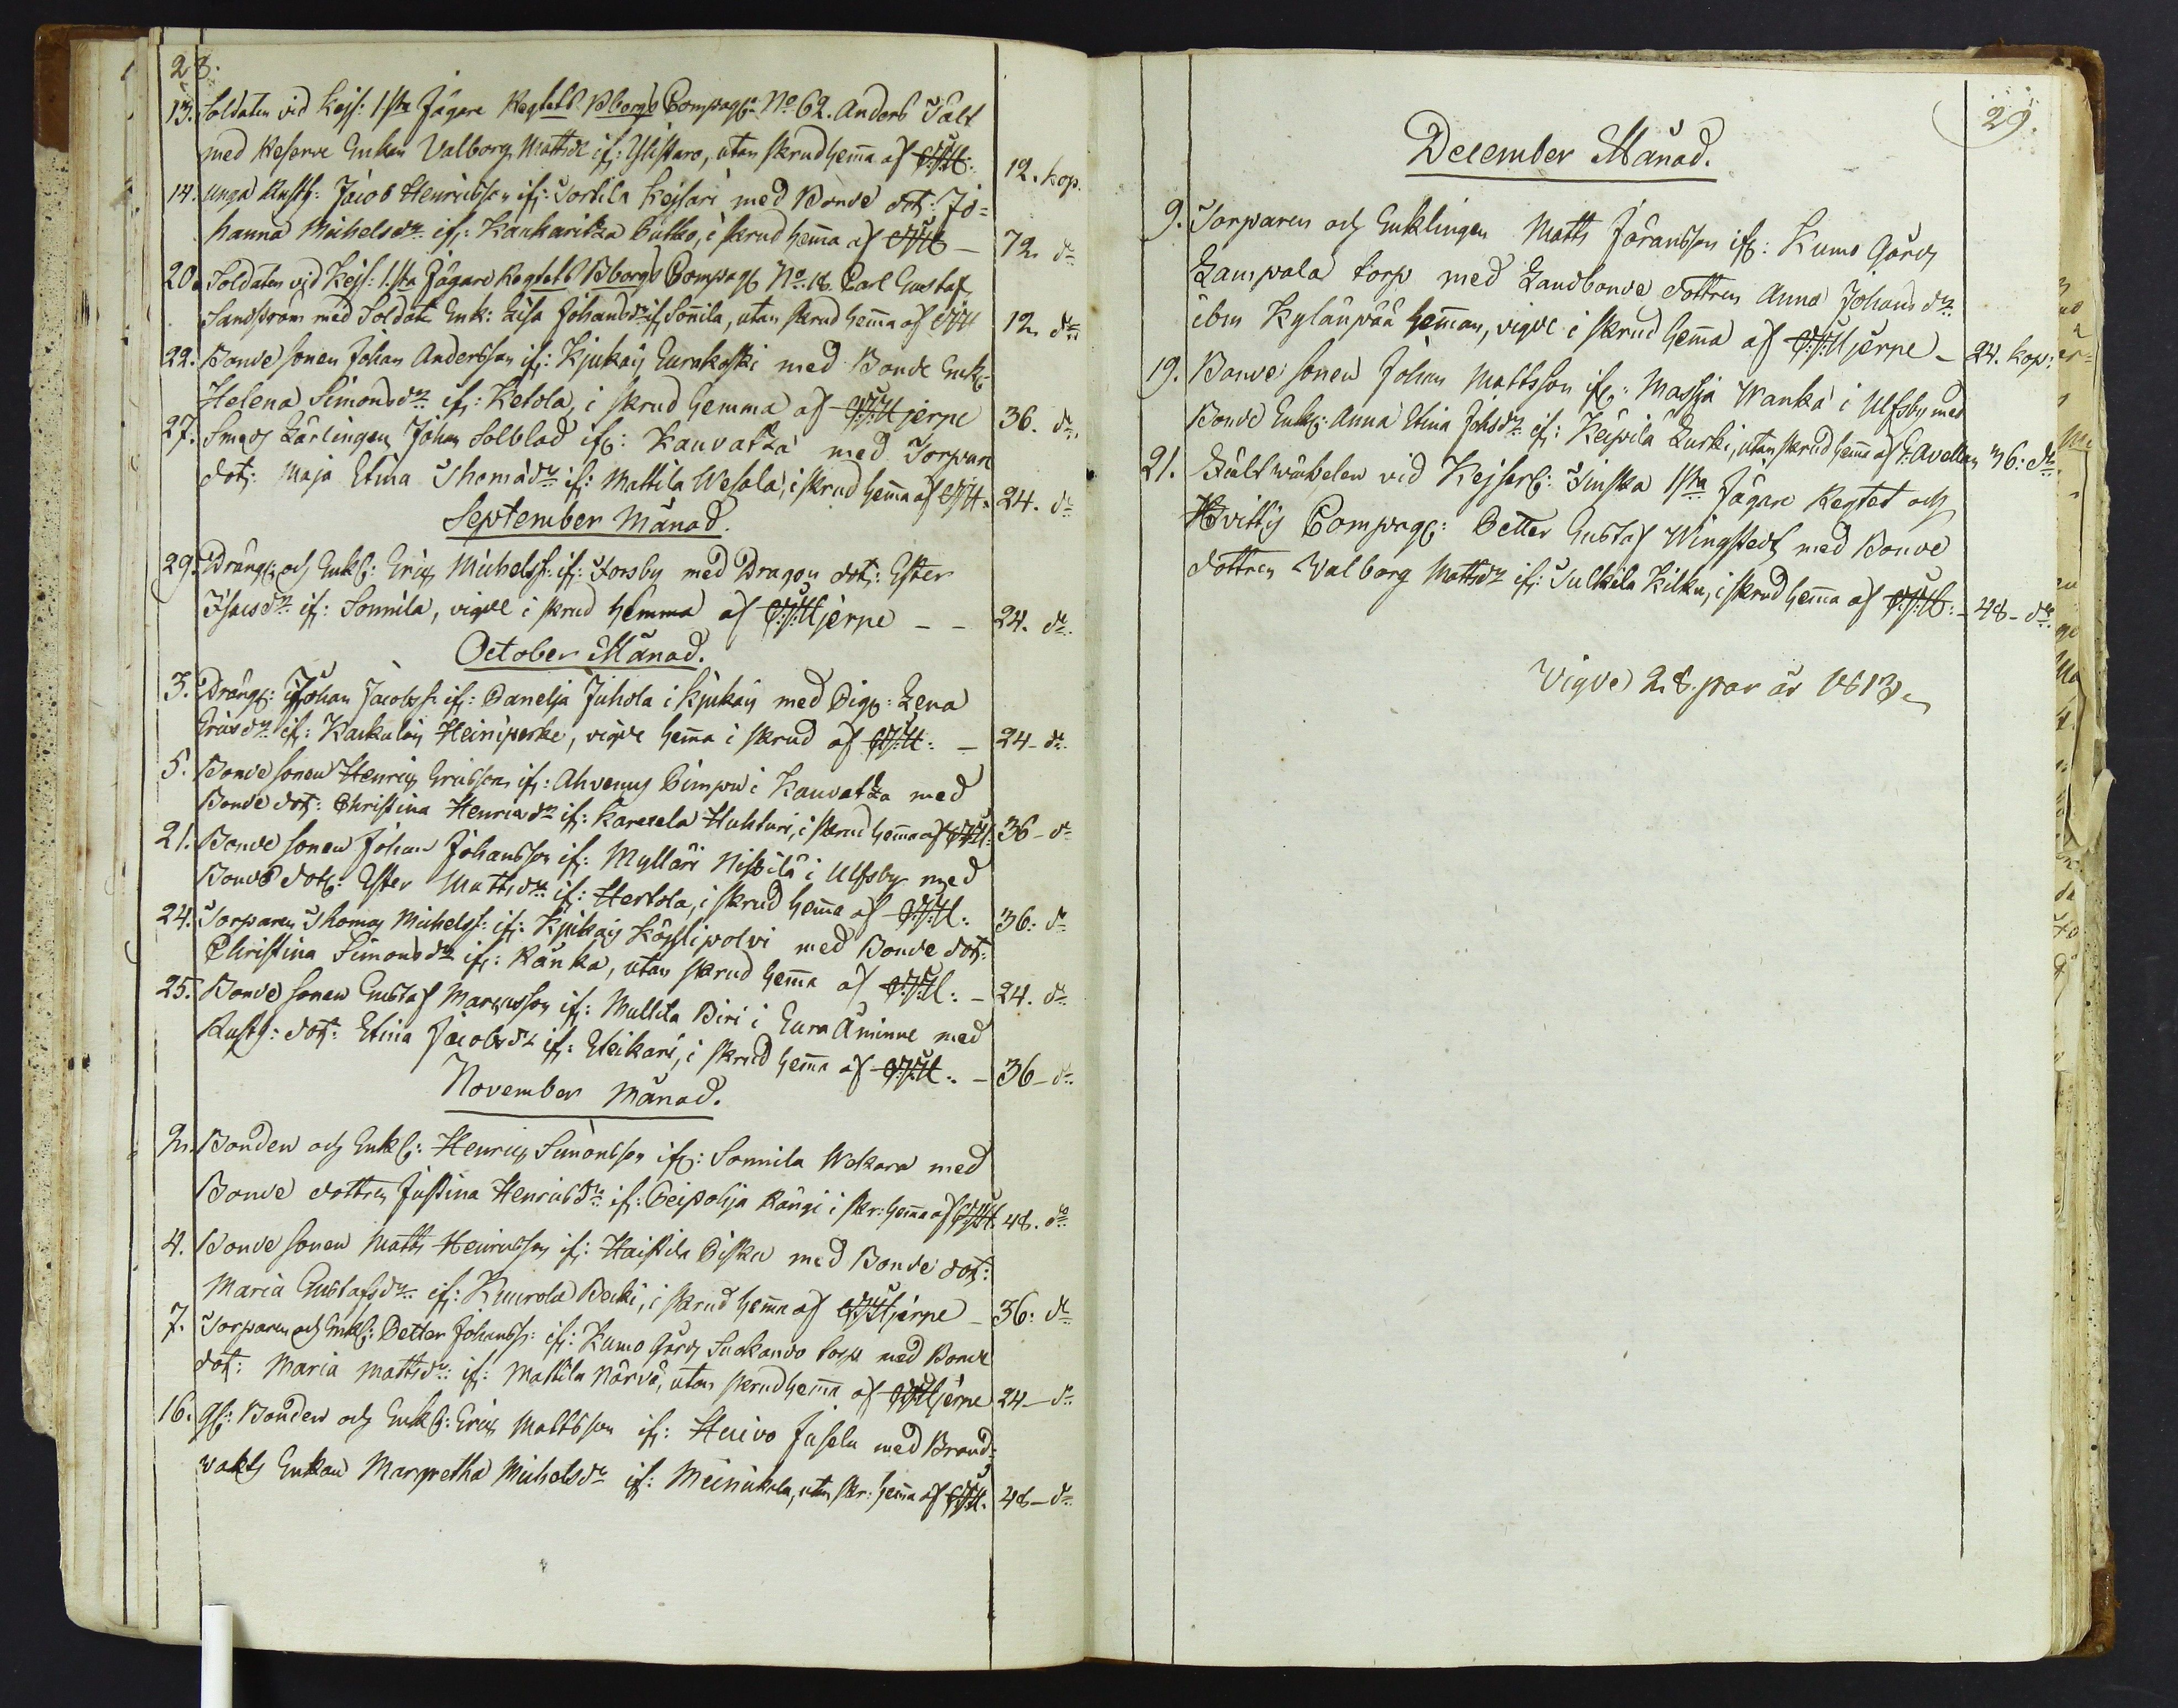 28.
13. Soldaten vid Kejs: 1sta Jägare Regtets Bborgs Compag: No 62. Anders Tält
med Reserve Enkan Valborg Mattsdr ifr: Ylistaro, utan skrud hemma af 12. kop.
14. unga Rusth: Jacob Henricsson ifr: Sortila Kejsari med Bonde dot: Jo=
hanna Michelsdr ifr: Kankaritza Putko, i skrud hemma af 72 do
20. Soldaten vid Kejs: 1sta Jägare Regtets Bborgs Compag No 18. Carl Gustaf
Sandström med Soldate Enk: Lisa Johansdr ifr Sonnila, utan skrud hemma af 12 do
22. Bonde sonen Johan Andersson ifr: Kjukais Eurakoski med Bonde Enk:
Helena Simonsdr ifr: Ketola, i skrud hemma af Hjerpe 36. do
27. Smeds Lärlingen Johan Solblad ifr: Kauvatza med Torpare
dot: Maja Stina Thomasdr ifr: Mattila Wesala, i skrud hemma af 24. do
September Månad.
29. Dräng: och Enkl: Eric Michelss: ifr: Forsby med Dragon dot: Ester
Isacsdr ifr: Sonnila, vigde i skrud hemma af Hjerpe 24. do
October Månad.
3. Dräng: Johan Jacobss: ifr: Panelja Juhola i Kjukais med Pig: Lena
Ericsdr ifr: Kaukolais Heiniperke, vigde hemma i skrud af 24 do
5. Bonde sonen Henric Ericsson ifr: Ahvenus Pimpu i Kauvatza med
Bonde dot: Christina Henricsdr ifr: Karecela Huhturi, i skrud hemma af 36 do
21. Bonde sonen Johan Johansson ifr: Mylläri Nissilä i Ulfsby med
Bonde dot: Ester Mattsdr ifr: Hertola, i skrud hemma af 36: do
24. Torparen Thomas Michelss: ifr: Kjukais Köylipolvi med Bonde dot:
Christina Simonsdr ifr: Ränka, utan skrud hemma af 24. do
25. Bonde sonen Gustaf Marcusson ifr: Mullila Piri i Eura Åminne med
Rusth: dot: Stina Jacobsdr ifr: Sleikari, i skrud hemma af 36 do
November Månad.
2. Bonden och Enkl: Henric Simonsson ifr: Sonnila Wekara med
Bonde dottren Justina Henricsdr ifr: Peipohja Rängi i skr: hemma af 48. do
4. Bonde sonen Matts Henricsson ifr: Haistila Piska med Bonde dot:
Maria Gustafsdr ifr: Kuurola Becki, i skrud hemma af Hjerpe 36: do
7. Torparen och Enkl: Petter Johanss: ifr: Kumo Gårds Suokando torp med Bonde
dot: Maria Mattsdr ifr: Mattila Närvä, utan skrud hemma af Hjerpe 24 do
16. Gl: Bonden och Enkl: Eric Mattsson ifr: Huivo Jusela med Brand=
vakts Enkan Margretha Michelsdr ifr: Meinikala, utan skr: hemma af 48 do
29.
December Månad.
9. Torparen och Enklingen Matts Jöransson ifr: Kumo Gårds
Lampala torp med Landbonde dottren Anna Johansdr
ibm Kylänpää hemman, vigde i skrud hemma af Hjerpe 24. kop:
19. Bonde sonen Johan Mattsson ifr: Massja Wanka i Ulfsby med
Bonde Enk: Anna Stina Johsdr ifr: Keipila Lurki, utan skrud hemma af E: Avellan 36: do
21. Fält wäbelen vid Kejserl: Finska 1sta Jägare Regtet och
Hvittis Compag: Petter Gustaf Wingstedt med Bonde
dottren Valborg Mattsdr ifr: Tulkila Kilku, i skrud hemma af 48 do
Vigde 28. par år 1813.